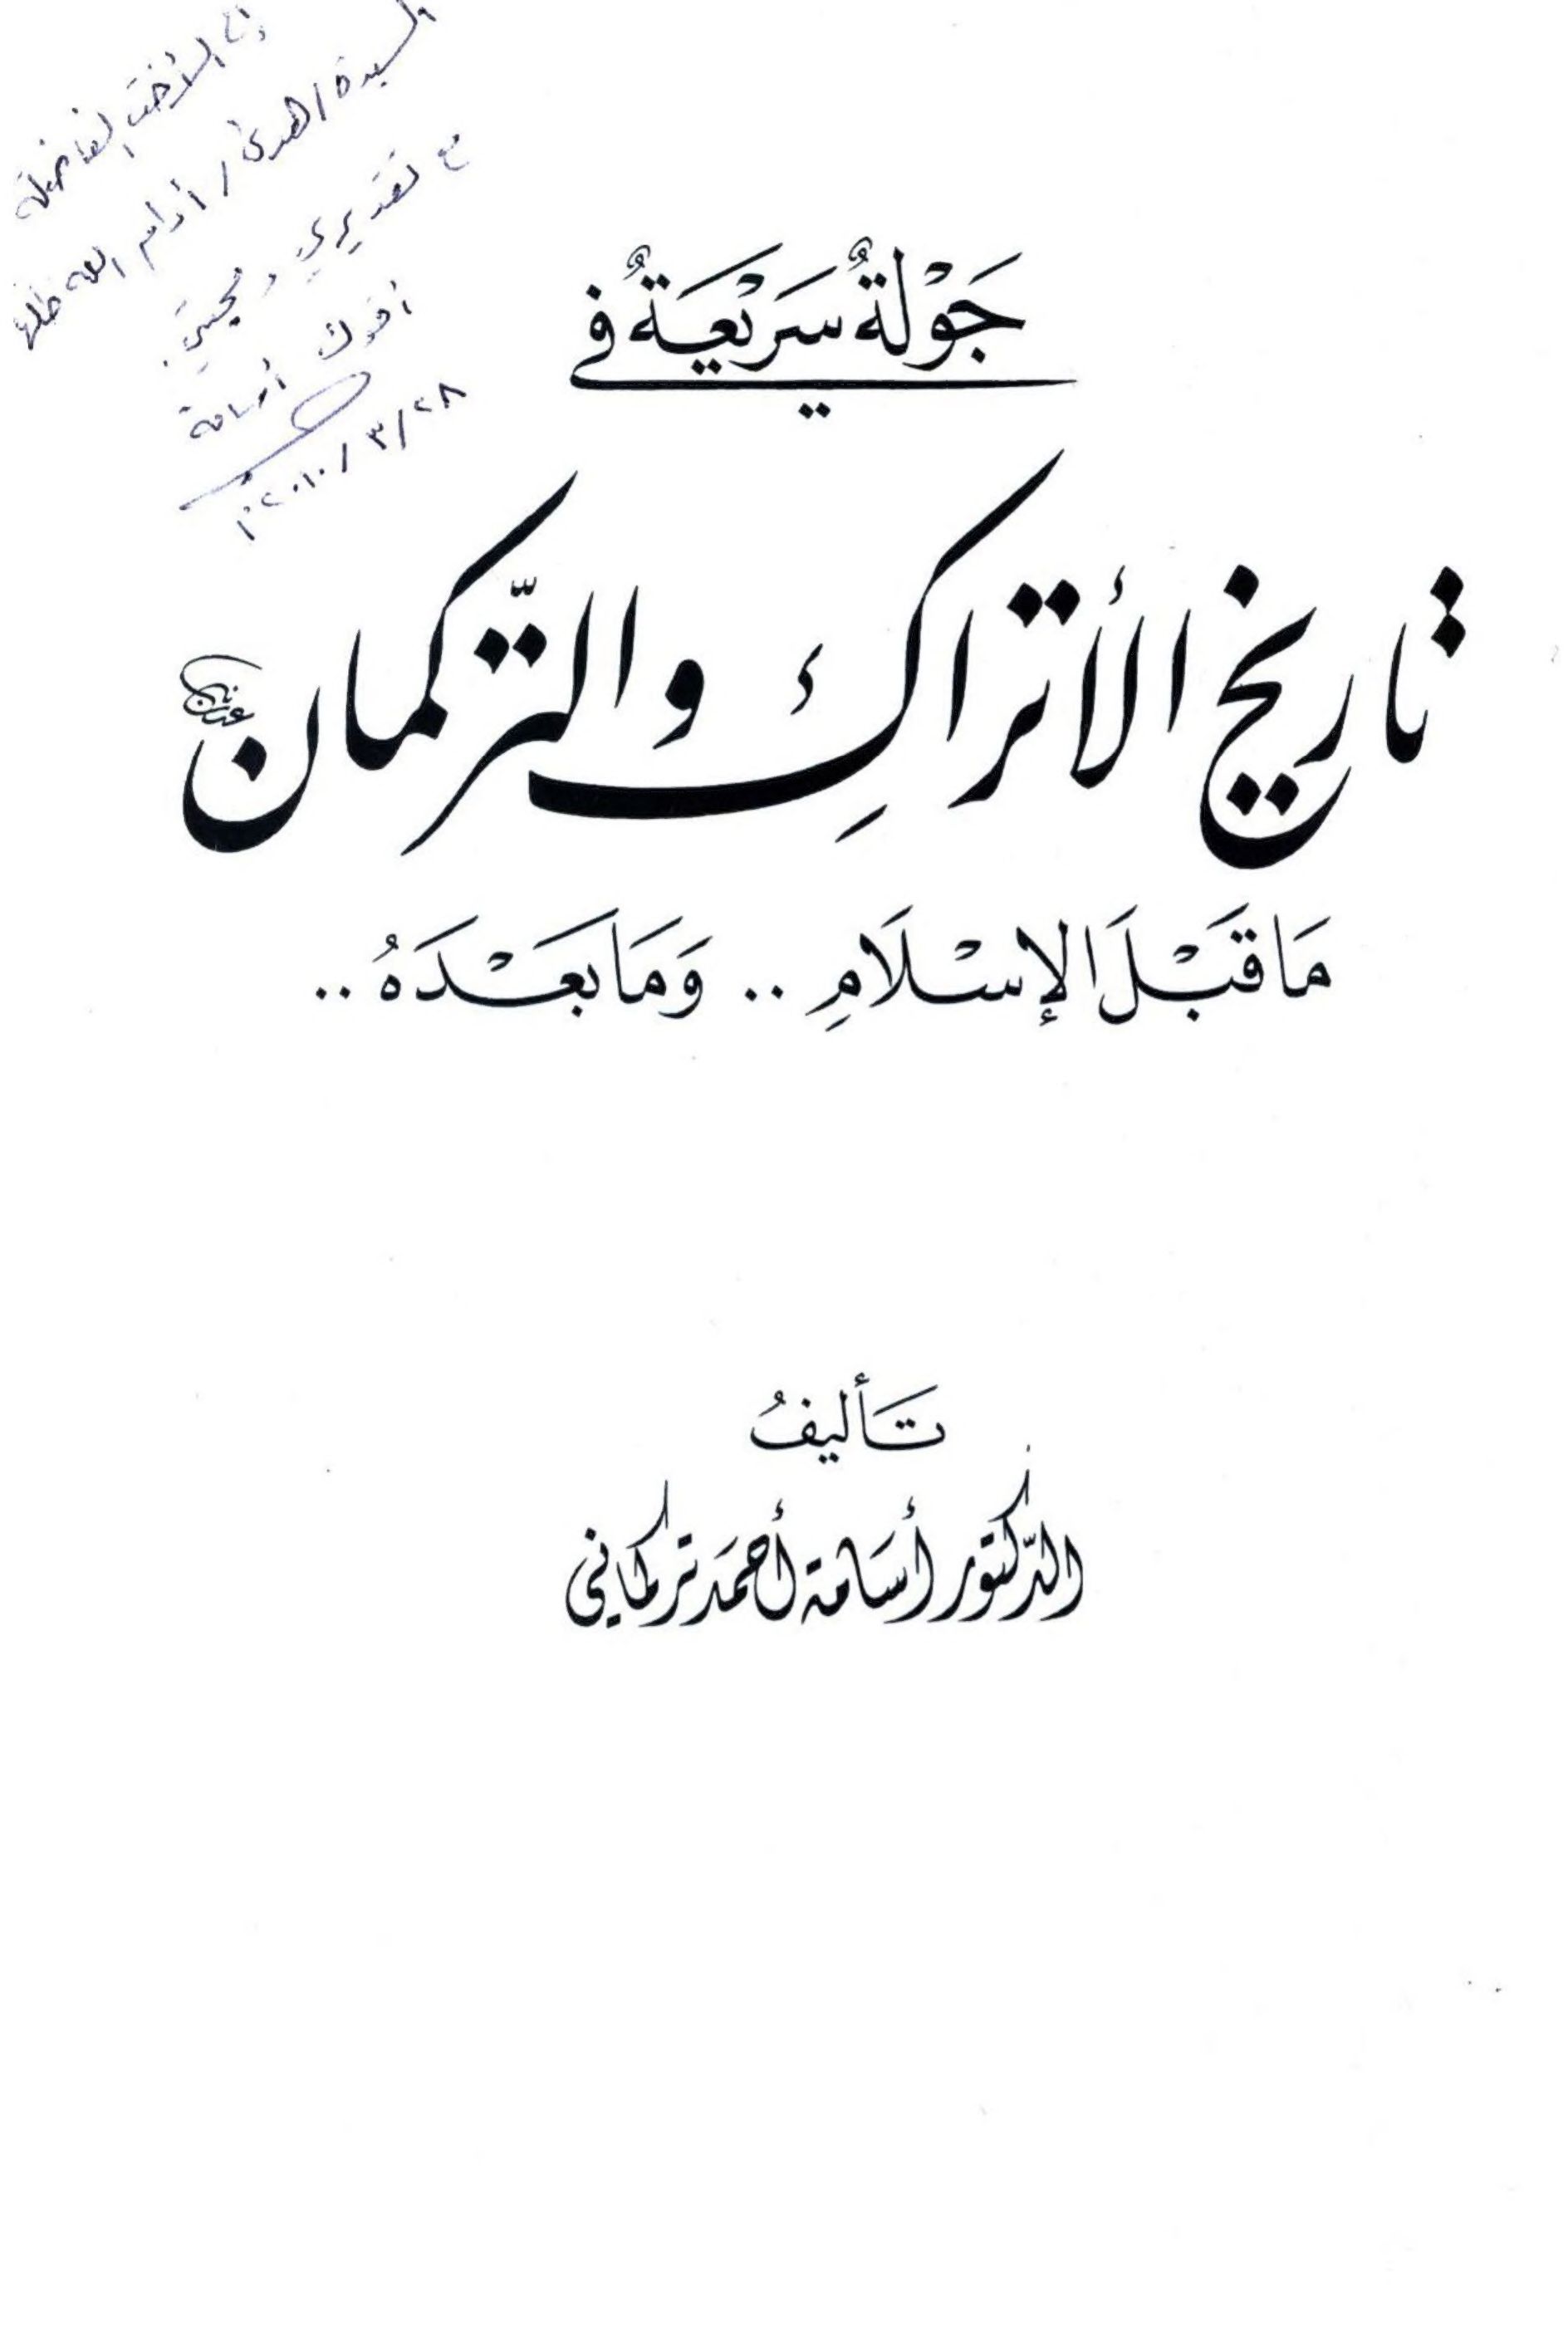 الأخت الفاضلة
السيدة / هدى / أدام الله ظلها
مع تقديري ومحبتي
أخوك أسامة
٢٠١٠/٣/٢٨م
جَوْلَةٌ سَرِيْعَةٌ في
تاريخ الأتراكِ والتّركمان
مَا قَبْلَ الإِسْلَامِ .. وَمَا بَعْدَهُ ..
تَأليفُ
الدّكتور أسَامة أحمَد تركماني